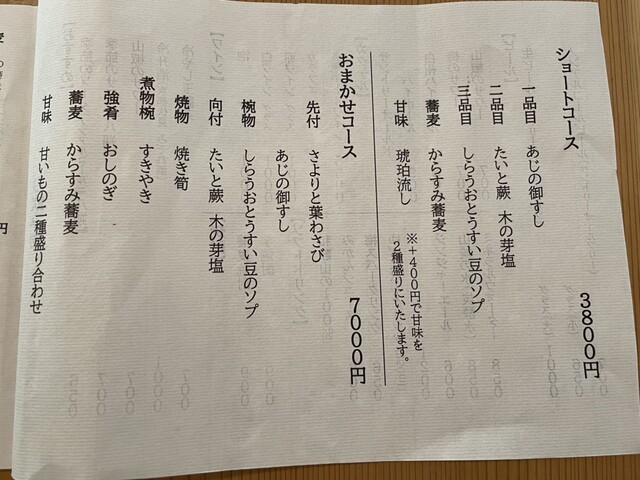 ショートコース 3800円
一品目 あじの御すし
二品目 たいと蕨 木の芽塩
三品目 しらうおとうすい豆のソプ
蕎麦 からすみ蕎麦
甘味 琥珀流し
※+400円で甘味を
2種盛りにいたします。
おまかせコース 7000円
先付 さよりと葉わさび
あじの御すし
椀物 しらうおとうすい豆のソプ
向付 たいと蕨 木の芽塩
焼物 焼き筍
煮物椀 すきやき
強肴 おしのぎ
蕎麦 からすみ蕎麦
甘味 甘いもの二種盛り合わせ